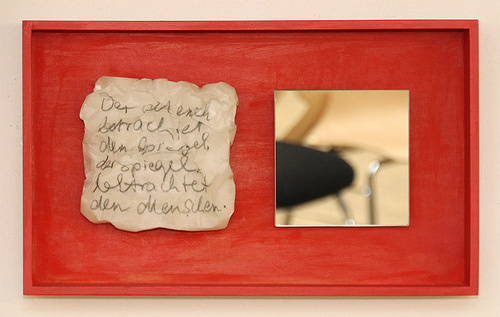 Der Mensch
betrachtet
den Spiegel.
der Spiegel
betrachtet
den Menschen.